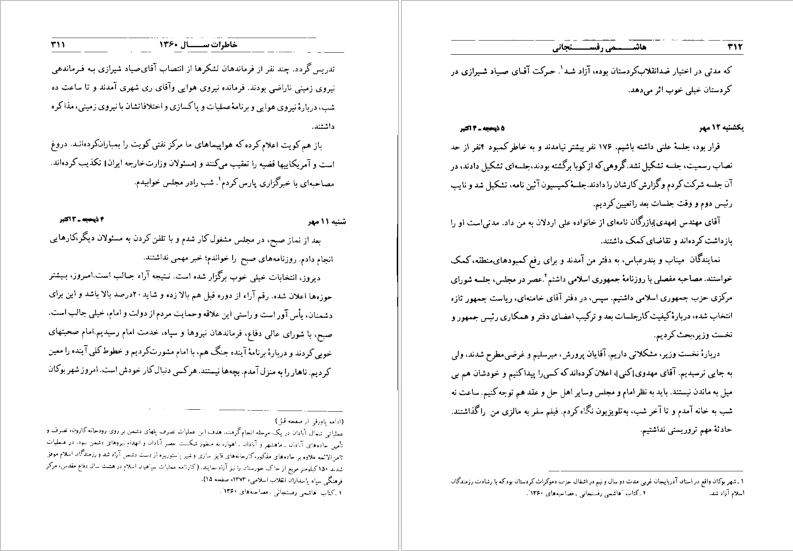 خاطرات ســـال ۱۳۶۰ ۳۱۱
تدریس گردد. چند نفر از فرماندهان لشکرها از انتصاب آقای‌صیاد شیرازی به فرماندهی
نیروی زمینی ناراضی بودند. فرمانده نیروی هوایی وآقای ری شهری آمدند و تا ساعت ده
شب، دربارهٔ نیروی هوایی و برنامهٔ عملیات و پاکسازی و اختلافاتشان با نیروی زمینی، مذاکره
داشتند.
باز هم کویت اعلام کرده که هواپیماهای ما مرکز نفتی کویت را بمباران‌کرده‌انـد. دروغ
است و آمریکاییها قضیه را تعقیب می‌کنند و [مسئولان وزارت‌خارجه ایران] تکذیب کرده‌اند.
مصاحبه‌ای با خبرگزاری پارس کردم۱. شب رادر مجلس خوابیدم.
شنبه ۱۱ مهر ۴ ذیحجه ـ ۳ اکتبر
بعد از نماز صبح، در مجلس مشغول کار شدم و با تلفن کردن به مسئولان دیگر،کارهایی
انجام دادم. روزنامه‌های صبح را خواندم؛ خبر مهمی نداشتند.
دیروز، انتخابات خیلی خوب برگزار شده است. نتیجه آراء جـالب است.امـروز، بیشتر
حوزه‌ها اعلان شده. رقم آراء از دوره قبل هم بالا زده و شاید ۲۰درصد بالا باشد و این برای
دشمنان، یأس آور است و راستی این علاقه وحمایت مردم از دولت و امام، خیلی جالب است.
صبح، با شورای عالی دفاع، فرماندهان نیروها و سپاه، خدمت امام رسیدیم.امام صحبتهای
خوبی‌کردند و دربارهٔ برنامهٔ آینده جنگ هم، با امام مشورت‌کردیم و خطوط‌کلی آینده را معین
کردیم. ناهار را به منزل آمدم. بچه‌ها نیستند. هرکسی دنبال‌کار خودش است. امروز شهر بوکان
(ادامه پاورقی از صفحه قبل)
عملیاتی شمال آبادان در یک مرحله انجام‌گرفت. هدف این عملیات تصرف پلهای دشمن بر روی رودخانه‌کارون، تصرف و
تأمین جاده‌های آبادان ـ ماهشهر و آبادان ـ اهواز، به منظور شکست حصر آبادان و انهدام نیروهای دشمن بود. در عملیات
ثامن‌الائمه علاوه بر جاده‌های مذکور،کارخانه‌های و شیر پاستوریزه از دست دشمن آزاد شد و رزمندگان اسلام موفق
شدند ۱۵۰کیلومتر مربع از خاک خوزستان را نیز آزاد نمایند. (کارنامه عملیات سپاهیان اسلام در هشت سال دفاع مقدس، مرکز
فرهنگی سپاه پاسداران انقلاب اسلامی، ۱۳۷۳، صفحه ۱۵).
۱ـ کتاب هاشمی رفسنجانی ، مصاحبه‌های ۱۳۶۰ .
۳۱۲ هاشـــــمی رفســـنجانی
که مدتی در اختیار ضدانقلاب‌کردستان بوده، آزاد شـد۱. حـرکت آقـای صـیاد شـیرازی در
کردستان خیلی خوب اثر می‌دهد.
یکشنبه ۱۲ مهر ۵ ذیحجه ـ ۴ اکتبر
قرار بود، جلسهٔ علنی داشته باشیم. ۱۷۶ نفر بیشتر نیامدند و به خاطر کمبود ۴نفر از حد
نصاب رسمیت، جلسه تشکیل نشد. گروهی که ازکوبا برگشته بودند،جلسه‌ای تشکیل دادند، در
آن جلسه شرکت‌کردم و گزارش کارشان را دادند. جلسهٔ کمیسیون آئین نامه، تشکیل شد و نایب
رئیس دوم و وقت جلسات بعد راتعیین کردیم.
آقای مهندس [مهدی]بازرگان نامه‌ای از خانواده علی اردلان به من داد. مدتی‌است او را
بازداشت کرده‌اند و تقاضای کمک داشتند.
نمایندگان میناب و بندرعباس، به دفتر من آمدند و برای رفع کمبودهای‌منطقه، کمک
خواستند. مصاحبه مفصلی با روزنامهٔ جمهوری اسلامی داشتم۲.عصر در مجلس، جلسه شورای
مرکزی حزب جمهوری اسلامی داشتیم. سپس، در دفتر آقای خامنه‌ای، ریاست جمهور تازه
انتخاب شده، دربارهٔ‌کیفیت کارجلسات بعد و ترکیب اعضای دفتر و همکاری رئیس جمهور و
نخست وزیر،بحث کردیم.
دربارهٔ نخست وزیر، مشکلاتی داریم. آقایان پرورش، میرسلیم و غرضی‌مطرح شدند، ولی
به جایی نرسیدیم. آقای مهدوی[کنی]، اعلان کرده‌اند که کسی‌را پیداکنیم و خودشان هم بی
میل به ماندن نیستند. باید به نظر امام و مجلس وسایر اهل حل و عقد هم توجه کنیم. ساعت نه
شب به خانه آمدم و تا آخر شب، به‌تلویزیون نگاه کردم. فیلم سفر به مالزی من را گذاشتند.
حادثهٔ مهم تروریستی نداشتیم.
۱ـ شهر بوکان واقع در استان آذربایجان غربی مدت دو سال و نیم در اشغال حزب دموکرات کردستان بود که با رشادت رزمندگان
اسلام آزاد شد. ۲ـ کتاب "هاشمی رفسنجانی ، مصاحبه‌های ۱۳۶۰".